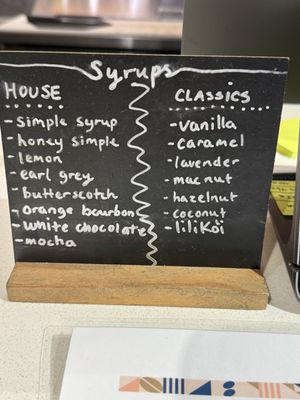 Syrups
HOUSE
- simple syrup
- honey simple
- lemon
- earl grey
- butterscotch
- orange bourbon
- white chocolate
- mocha
CLASSICS
- vanilla
- caramel
- lavender
- mac nut
- hazelnut
- coconut
- lilikoi